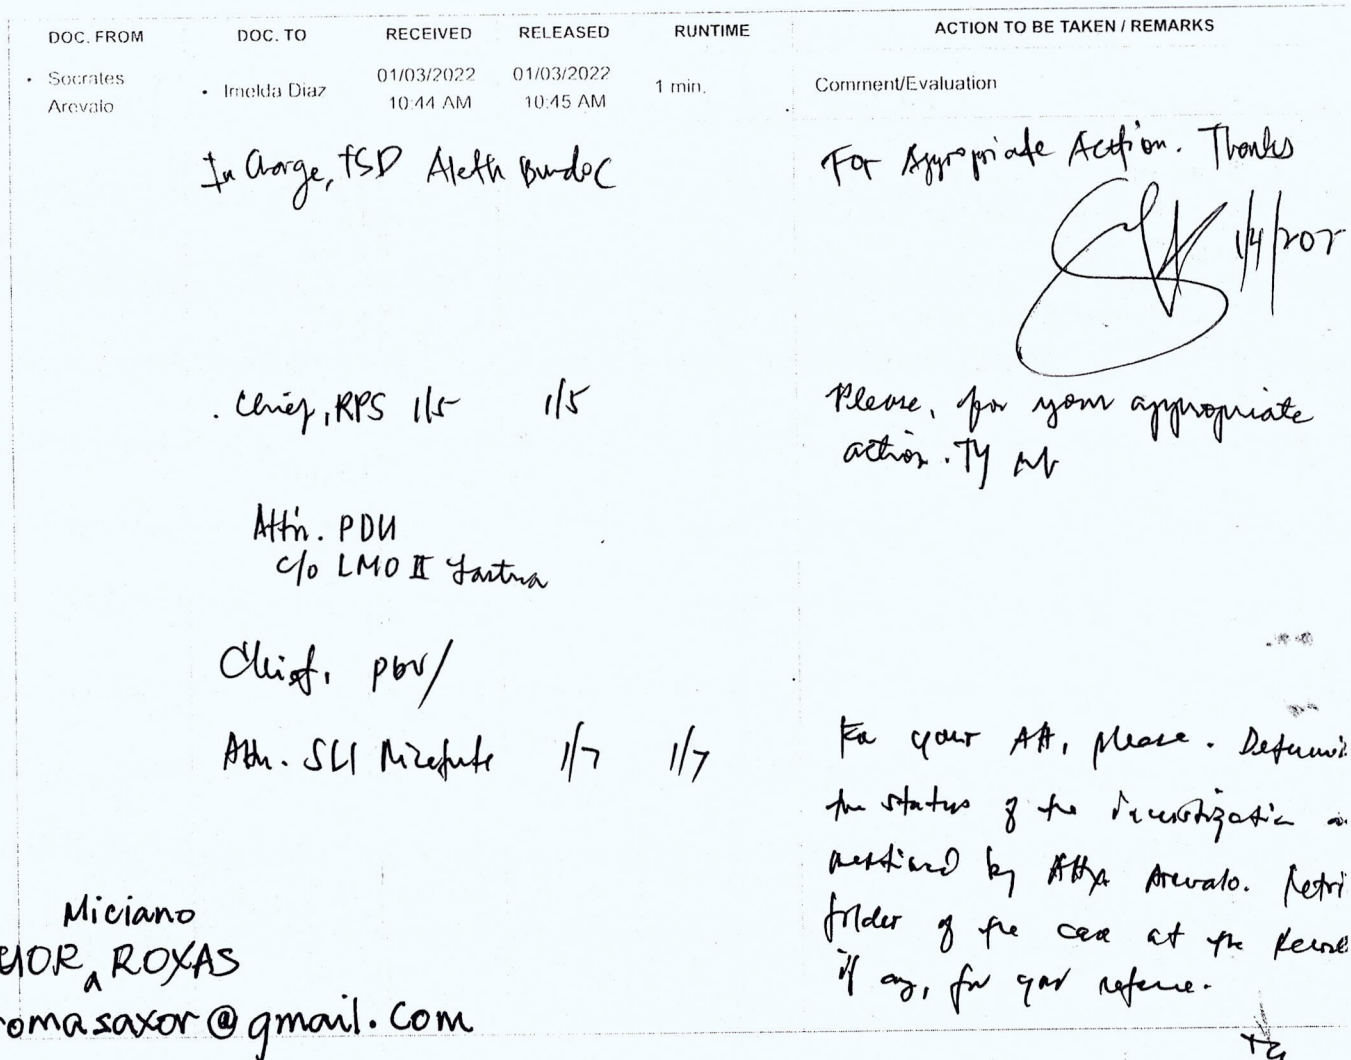 DOC. FROM DOC. TO RECEIVED RELEASED RUNTIME ACTION TO BE TAKEN / REMARKS
Socrates Arevalo Imelda Diaz 01/03/2022 10:44 AM 01/03/2022 10:45 AM 1 min. Comment/Evaluation
In Charge, TSD Aleth Burdoc For Appropriate Action. Thanks
Chief, RPS 1/5 1/5 Please, for your appropriate
action. TY
Attn. PDU
c/o LMO II
Chief, PDU/
Attn. SLI 1/7 1/7 For your AA, please.
the status of the investigation
mentioned by Atty Arevalo.
folder of the case at the
if any, for your reference.
Miciano
ROXAS
omasaxor@gmail.com